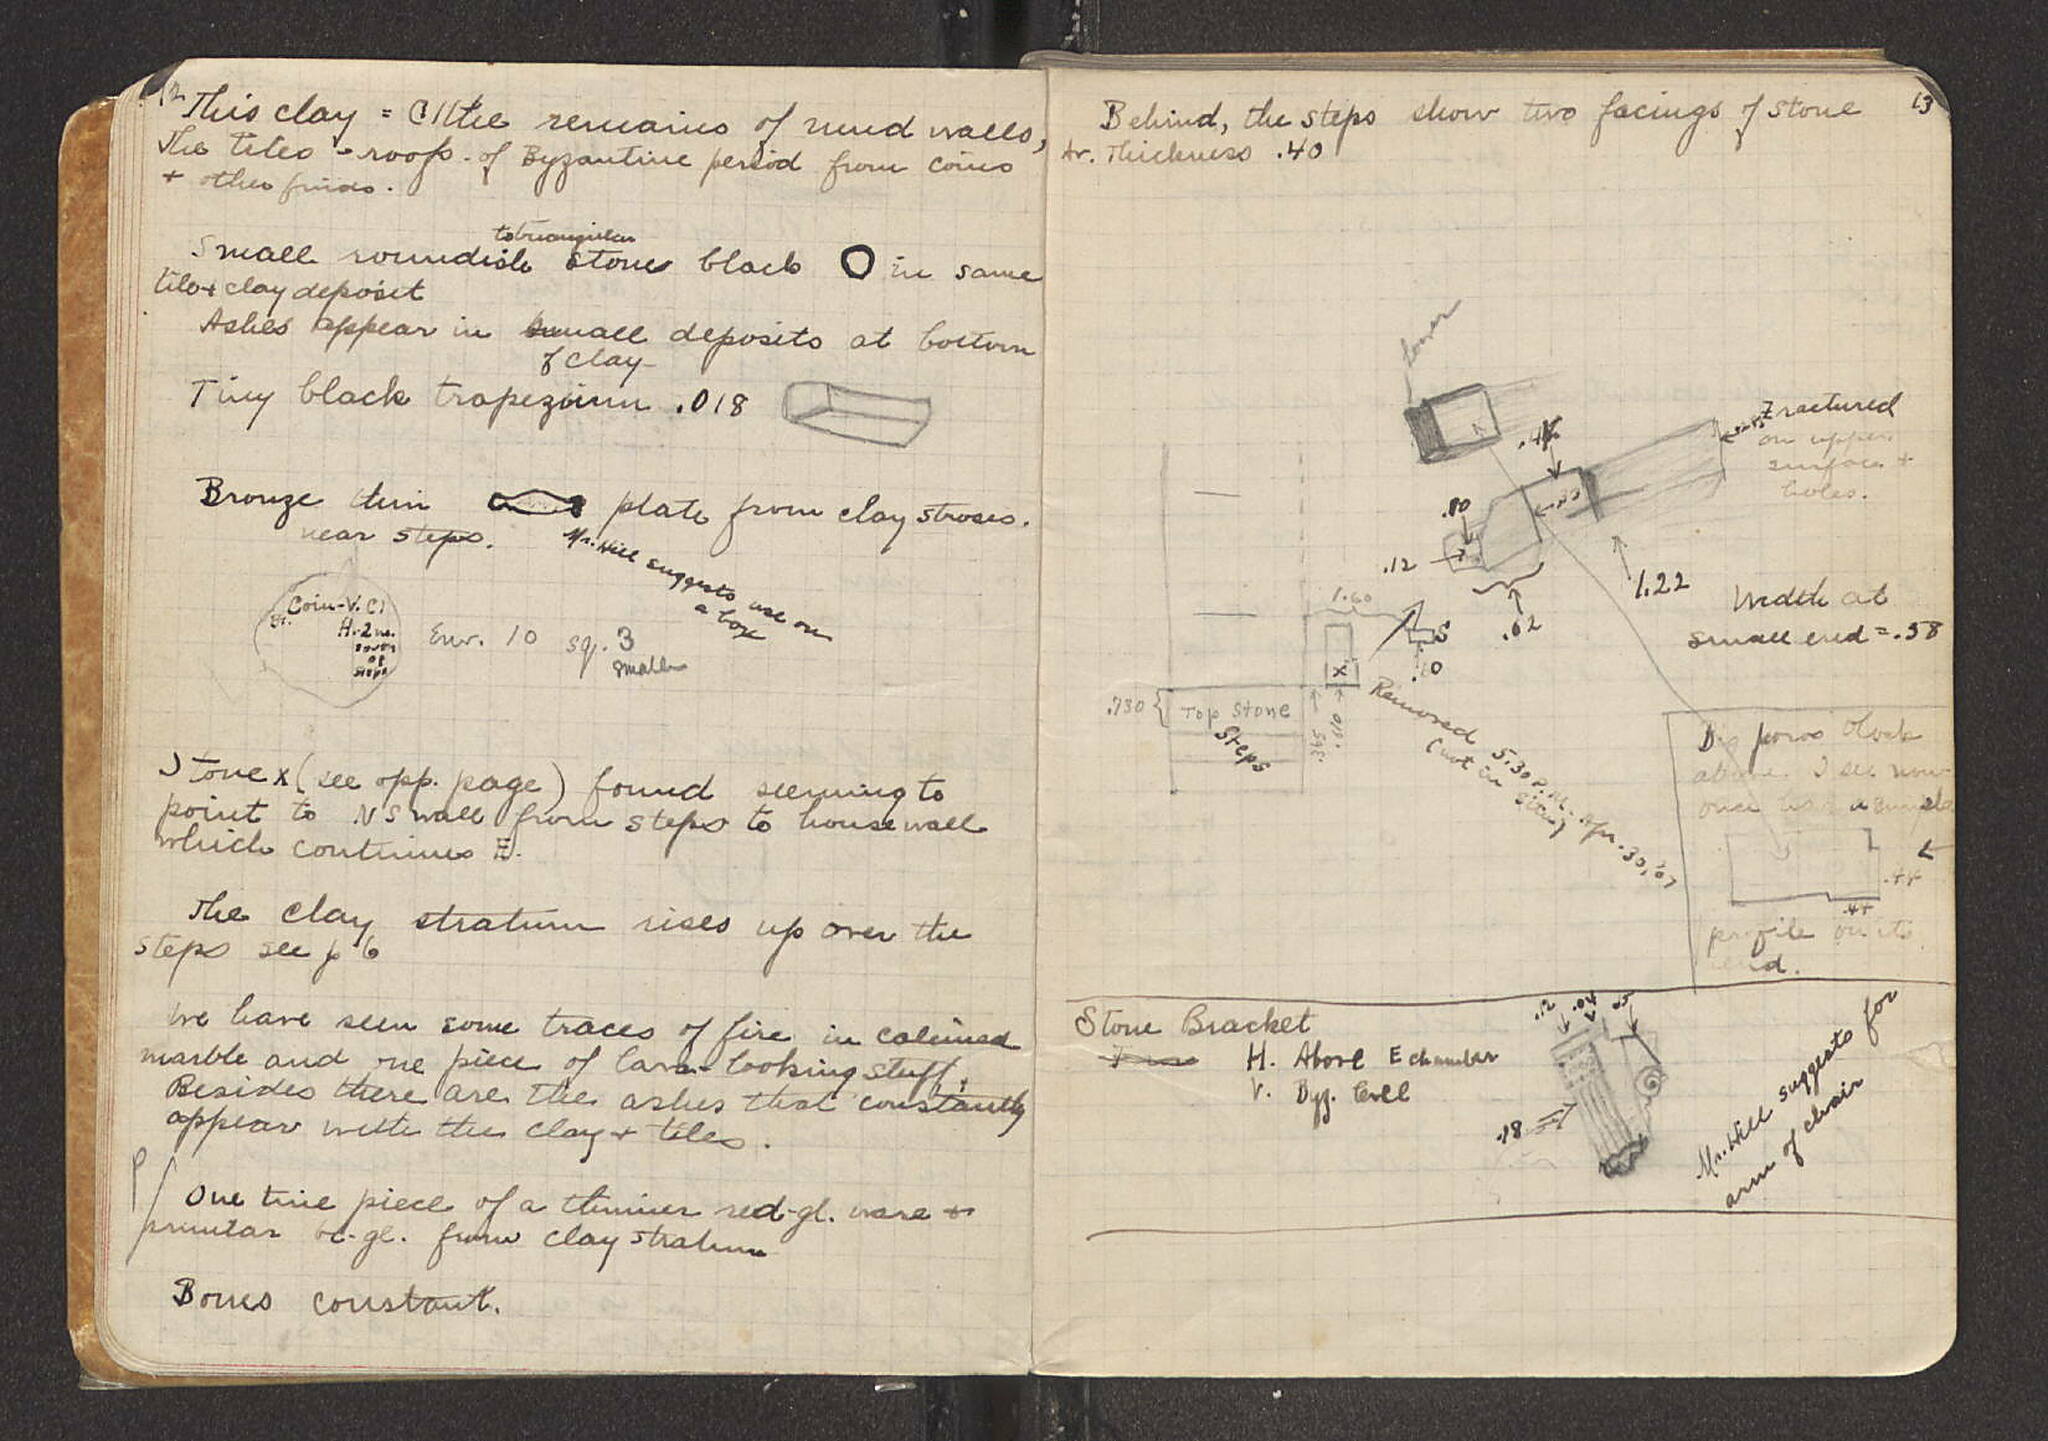 12
This clay = all the remains of mud walls,
The tiles = roofs - of Byzantine period from coins
+ other finds.
to triangular
Small roundish stones black O in same
tile + clay deposit
Ashes appear in small deposits at bottom
of clay
Tiny black trapezium .018
Bronze thin plate from clay stroses.
near steps.
Mr. Hill suggests use on
a box
Coin - V. Cl
H. 2 m.
of
steps
Env. 10 sq. 3
small
Stone x (see opp. page) found seeming to
point to NS wall from steps to house wall
which continues E.
The clay stratum rises up over the
steps see p 6
We have seen some traces of fire in calcined
marble and one piece of lava-looking stuff.
Besides there are the ashes that constantly
appear with the clay + tiles.
P
One fine piece of a thinner red-gl. ware +
similar bl-gl. from clay stratum
Bones constant.
13
Behind, the steps show two facings of stone
Av. Thickness .40
lower
Fractured
on upper
surface +
holes.
.80
.12
.62
1.22
Width at
small end = .58
1.60
S
.10
x
.730
Top Stone
Steps
.010
.395
Removed 5.30 P.M. Apr. 30, '07
(not in situ)
Big poros block
above. I see now
once had a simple
.44
.44
profile on its
end.
Stone Bracket
H. Above E chamber
V. Byz. level
.12 .04 .05
.18
Mr. Hill suggests for
arm of chair